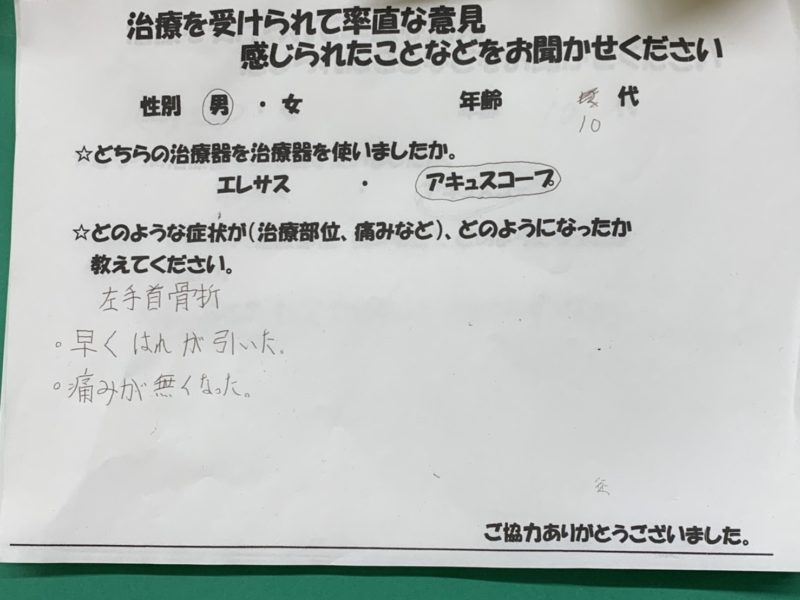 治療を受けられて率直な意見
感じられたことなどをお聞かせください
性別 男 ・ 女 年齢 代
10
☆どちらの治療器を治療器を使いましたか。
エレサス ・ アキュスコープ
☆どのような症状が(治療部位、痛みなど)、どのようになったか
教えてください。
左手首骨折
。早くはれが引いた。
。痛みが無くなった。
ご協力ありがとうございました。